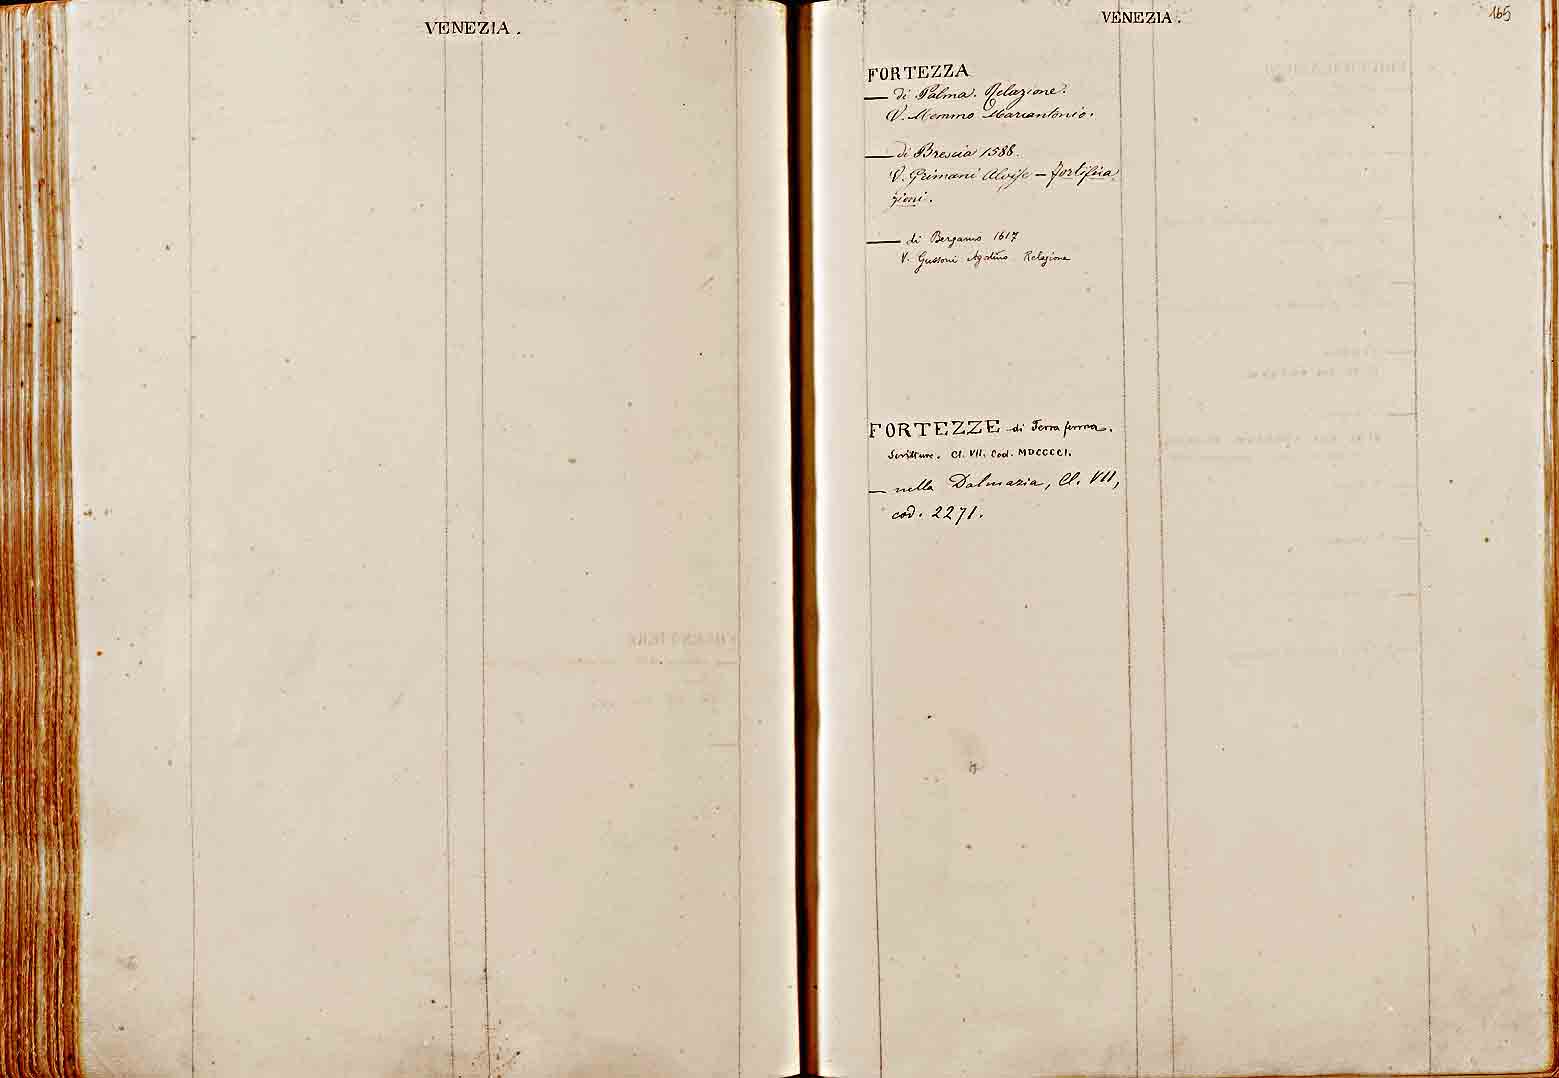 VENEZIA.
VENEZIA.
165
FORTEZZA
— di Palma. Relazione.
V. Memmo Marcantonio.
— di Brescia 1588.
V. Grimani Alvise — Fortifica
zioni.
— di Bergamo 1617
V. Gussoni Agostino Relazione
FORTEZZE di Terra ferma.
Scritture. Cl. VII. Cod. MDCCCCI.
— nella Dalmazia, Cl. VII,
cod. 2271.